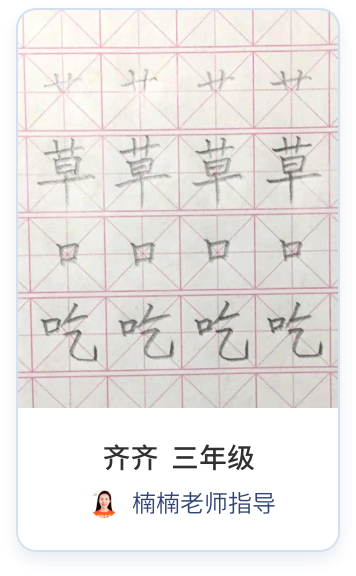 艹 艹 艹 艹
草 草 草 草
口 口 口 口
吃 吃 吃 吃
齐齐 三年级
楠楠老师指导